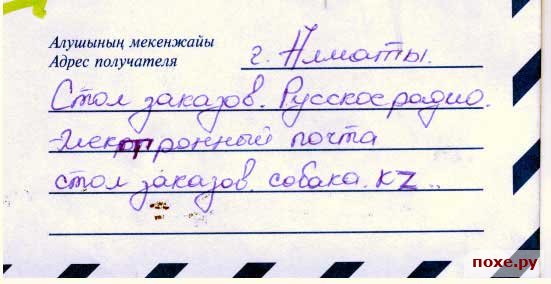 Алушының мекенжайы
Адрес получателя
г. Алматы.
Стол заказов. Русское радио.
электронный почта
стол заказов. собака. kz..
похе.ру